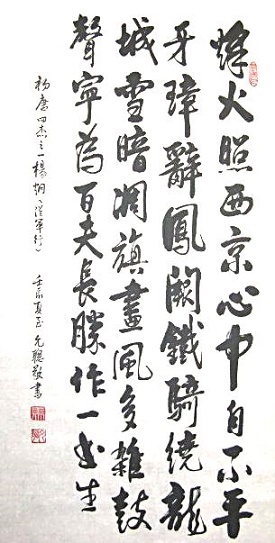 烽火照西京心中自不平
牙璋辭鳳闕鐵騎繞龍
城雪暗凋旗畫風多雜鼓
聲寧為百夫長勝作一書生
初唐四杰之一楊炯《從軍行》 壬辰夏至 允聰敬書